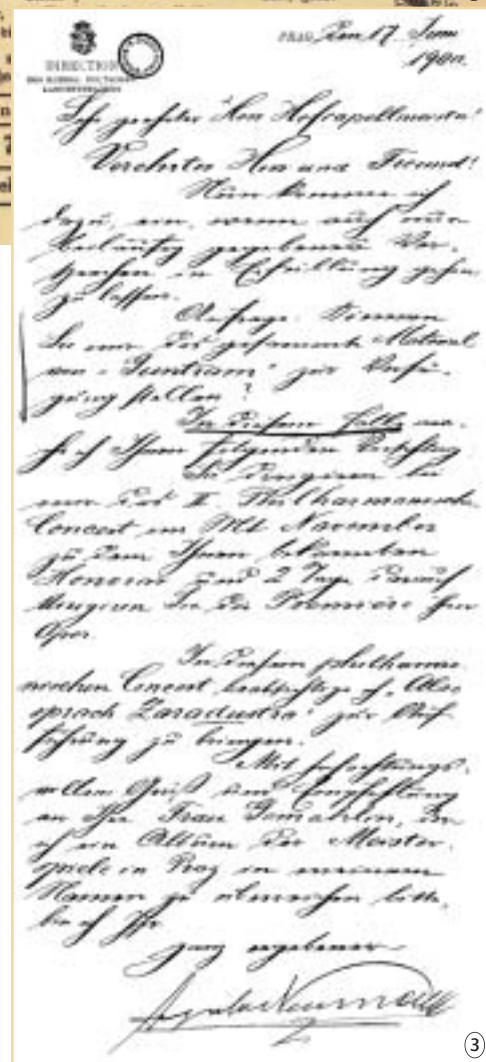 DIRECTION
DES KÖNIGL. DEUTSCHEN
LANDESTHEATERS
PRAG, den 17. Juni
1900.
Sehr geehrter Herr Hofcapellmeister!
Verehrter Herr und Freund!
Nun komme ich
dazu, ein, wenn auch nur
beiläufig gegebenes Ver-
sprechen in Erfüllung gehen
zu lassen.
Anfrage: Können
Sie mir das gesammte Material
von „Guntram" zur Verfü-
gung stellen?
In diesem Falle ma-
che ich Ihnen folgenden Vorschlag
Sie dirigiren bei
mir das II Philharmonische
Concert im Mt November
zu dem Ihnen bekannten
Honorar und 2 Tage darauf
dirigiren Sie die Première Ihrer
Oper.
In diesem philharmo-
nischen Concert beabsichtige ich „Also
sprach Zaradustra" zur Auf-
führung zu bringen.
Mit hochachtungs-
vollem Gruß und Empfehlung
an Ihre Frau Gemahlin, der
ich ein Album der Meister-
spiele in Prag in meinem
Namen zu überreichen bitte,
bin ich Ihr
ganz ergebener
Angelo Neumann
3